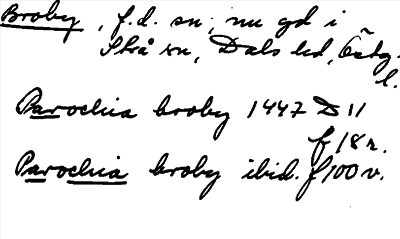 Broby, f.d. sn; nu gd i
Strå sn, Dals hd, Östg.
l.
Parochia broby 1447 D 11
f 18 r.
Parochia broby ibid. f 100 v.